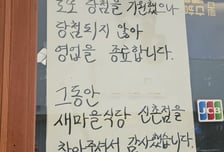 로또 당첨을 기원했으나
당첨되지 않아
영업을 종료합니다.
그동안
새마을식당 신촌점을
찾아주셔서 감사했습니다.
JCB